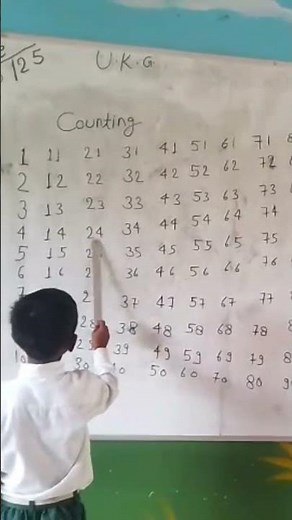 125
U.K.G.
Counting
1 11 21 31 41 51 61 71
2 12 22 32 42 52 62 72
3 13 23 33 43 53 63 73
4 14 24 34 44 54 64 74
5 15 35 45 55 65 75
6 16 36 46 56 66 76
37 47 57 67 77
28 38 48 58 68 78
39 49 59 69 79
30 50 60 70 80